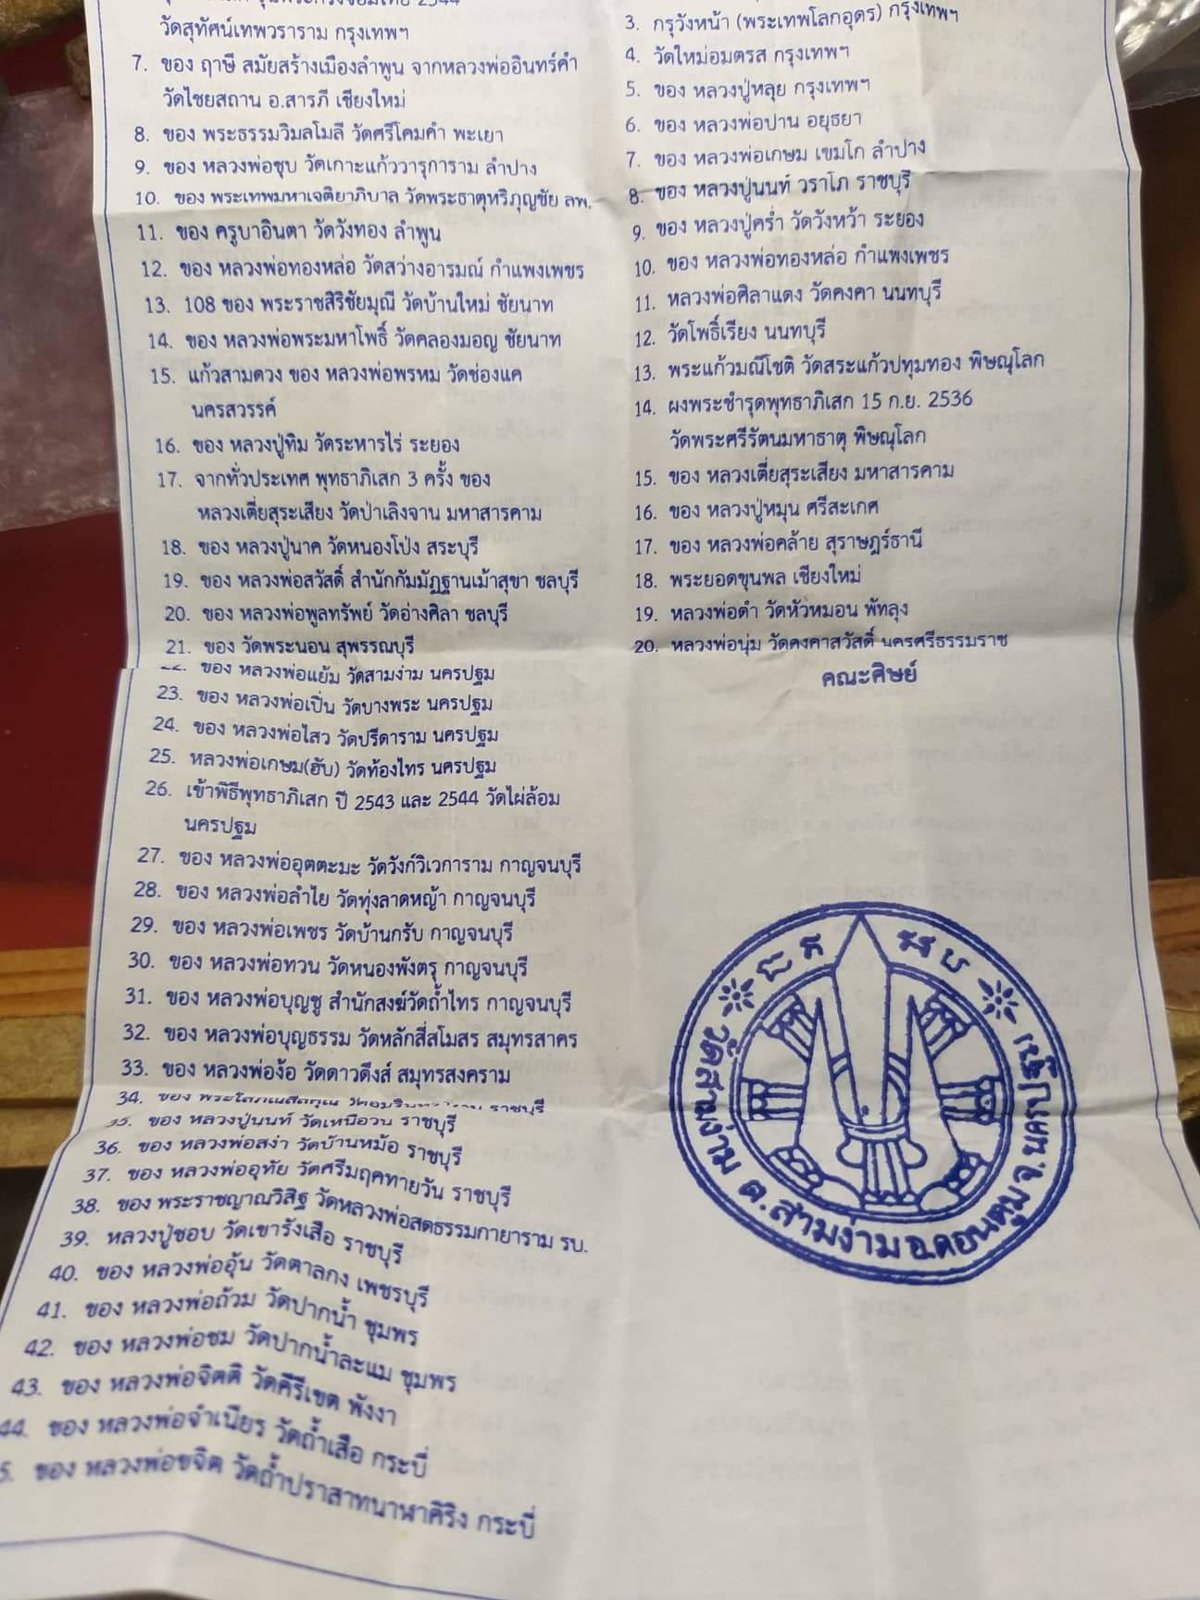 วัดสุทัศน์เทพวราราม กรุงเทพฯ
7. ของ ฤาษี สมัยสร้างเมืองลำพูน จากหลวงพ่ออินทร์คำ
วัดไชยสถาน อ.สารภี เชียงใหม่
8. ของ พระธรรมวิมลโมลี วัดศรีโคมคำ พะเยา
9. ของ หลวงพ่อชุบ วัดเกาะแก้ววารุการาม ลำปาง
10. ของ พระเทพมหาเจติยาภิบาล วัดพระธาตุหริภุญชัย ลพ.
11. ของ ครูบาอินตา วัดวังทอง ลำพูน
12. ของ หลวงพ่อทองหล่อ วัดสว่างอารมณ์ กำแพงเพชร
13. 108 ของ พระราชสิริชัยมุณี วัดบ้านใหม่ ชัยนาท
14. ของ หลวงพ่อพระมหาโพธิ์ วัดคลองมอญ ชัยนาท
15. แก้วสามดวง ของ หลวงพ่อพรหม วัดช่องแค
นครสวรรค์
16. ของ หลวงปู่ทิม วัดระหารไร่ ระยอง
17. จากทั่วประเทศ พุทธาภิเสก 3 ครั้ง ของ
หลวงเตี่ยสุระเสียง วัดป่าเลิงจาน มหาสารคาม
18. ของ หลวงปู่นาค วัดหนองโป่ง สระบุรี
19. ของ หลวงพ่อสวัสดิ์ สำนักกัมมัฏฐานเม้าสุขา ชลบุรี
20. ของ หลวงพ่อพูลทรัพย์ วัดอ่างศิลา ชลบุรี
21. ของ วัดพระนอน สุพรรณบุรี
22. ของ หลวงพ่อแย้ม วัดสามง่าม นครปฐม
23. ของ หลวงพ่อเปิ่น วัดบางพระ นครปฐม
24. ของ หลวงพ่อไสว วัดปรีดาราม นครปฐม
25. หลวงพ่อเกษม(ฮับ) วัดท้องไทร นครปฐม
26. เข้าพิธีพุทธาภิเสก ปี 2543 และ 2544 วัดไผ่ล้อม
นครปฐม
27. ของ หลวงพ่ออุตตะมะ วัดวังก์วิเวการาม กาญจนบุรี
28. ของ หลวงพ่อลำไย วัดทุ่งลาดหญ้า กาญจนบุรี
29. ของ หลวงพ่อเพชร วัดบ้านกรับ กาญจนบุรี
30. ของ หลวงพ่อทวน วัดหนองพังตรุ กาญจนบุรี
31. ของ หลวงพ่อบุญชู สำนักสงฆ์วัดถ้ำไทร กาญจนบุรี
32. ของ หลวงพ่อบุญธรรม วัดหลักสี่สโมสร สมุทรสาคร
33. ของ หลวงพ่อง้อ วัดดาวดึงส์ สมุทรสงคราม
34. ของ ราชบุรี
35. ของ หลวงปู่นนท์ วัดเหนือวน ราชบุรี
36. ของ หลวงพ่อสง่า วัดบ้านหม้อ ราชบุรี
37. ของ หลวงพ่ออุทัย วัดศรีมฤคทายวัน ราชบุรี
38. ของ พระราชญาณวิสิฐ วัดหลวงพ่อสดธรรมกายาราม รบ.
39. หลวงปู่ชอบ วัดเขารังเสือ ราชบุรี
40. ของ หลวงพ่ออุ้น วัดตาลกง เพชรบุรี
41. ของ หลวงพ่อถ้วม วัดปากน้ำ ชุมพร
42. ของ หลวงพ่อชม วัดปากน้ำละแม ชุมพร
43. ของ หลวงพ่อจิตติ วัดคีรีเขต พังงา
44. ของ หลวงพ่อจำเนียร วัดถ้ำเสือ กระบี่
5. ของ หลวงพ่อขจิต วัดถ้ำปราสาทนาฬาคิริง กระบี่
3. กรุวังหน้า (พระเทพโลกอุดร) กรุงเทพฯ
4. วัดใหม่อมตรส กรุงเทพฯ
5. ของ หลวงปู่หลุย กรุงเทพฯ
6. ของ หลวงพ่อปาน อยุธยา
7. ของ หลวงพ่อเกษม เขมโก ลำปาง
8. ของ หลวงปู่นนท์ วราโภ ราชบุรี
9. ของ หลวงปู่คร่ำ วัดวังหว้า ระยอง
10. ของ หลวงพ่อทองหล่อ กำแพงเพชร
11. หลวงพ่อศิลาแดง วัดคงคา นนทบุรี
12. วัดโพธิ์เรียง นนทบุรี
13. พระแก้วมณีโชติ วัดสระแก้วปทุมทอง พิษณุโลก
14. ผงพระชำรุดพุทธาภิเสก 15 ก.ย. 2536
วัดพระศรีรัตนมหาธาตุ พิษณุโลก
15. ของ หลวงเตี่ยสุระเสียง มหาสารคาม
16. ของ หลวงปู่หมุน ศรีสะเกศ
17. ของ หลวงพ่อคล้าย สุราษฎร์ธานี
18. พระยอดขุนพล เชียงใหม่
19. หลวงพ่อดำ วัดหัวหมอน พัทลุง
20. หลวงพ่อนุ่ม วัดคงคาสวัสดิ์ นครศรีธรรมราช
คณะศิษย์
วัดสามง่าม ต.สามง่าม อ.ดอนตูม จ.นครปฐม